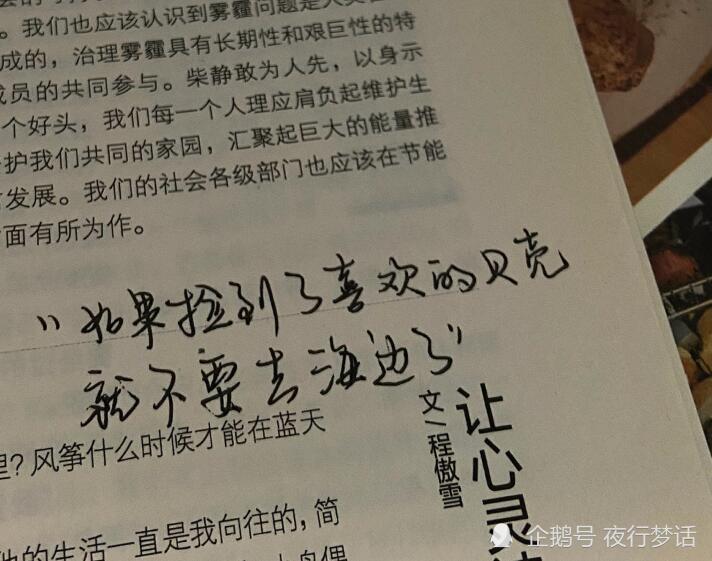 。我们也应该认识到雾霾问题是人类
成的，治理雾霾具有长期性和艰巨性的特
成员的共同参与。柴静敢为人先，以身示
个好头，我们每一个人理应肩负起维护生
护我们共同的家园，汇聚起巨大的能量推
发展。我们的社会各级部门也应该在节能
面有所为作。
"如果捡到了喜欢的贝壳
就不要去海边了"
里？风筝什么时候才能在蓝天
的生活一直是我向往的，简
让心灵
文/程傲雪
企鹅号 夜行梦话